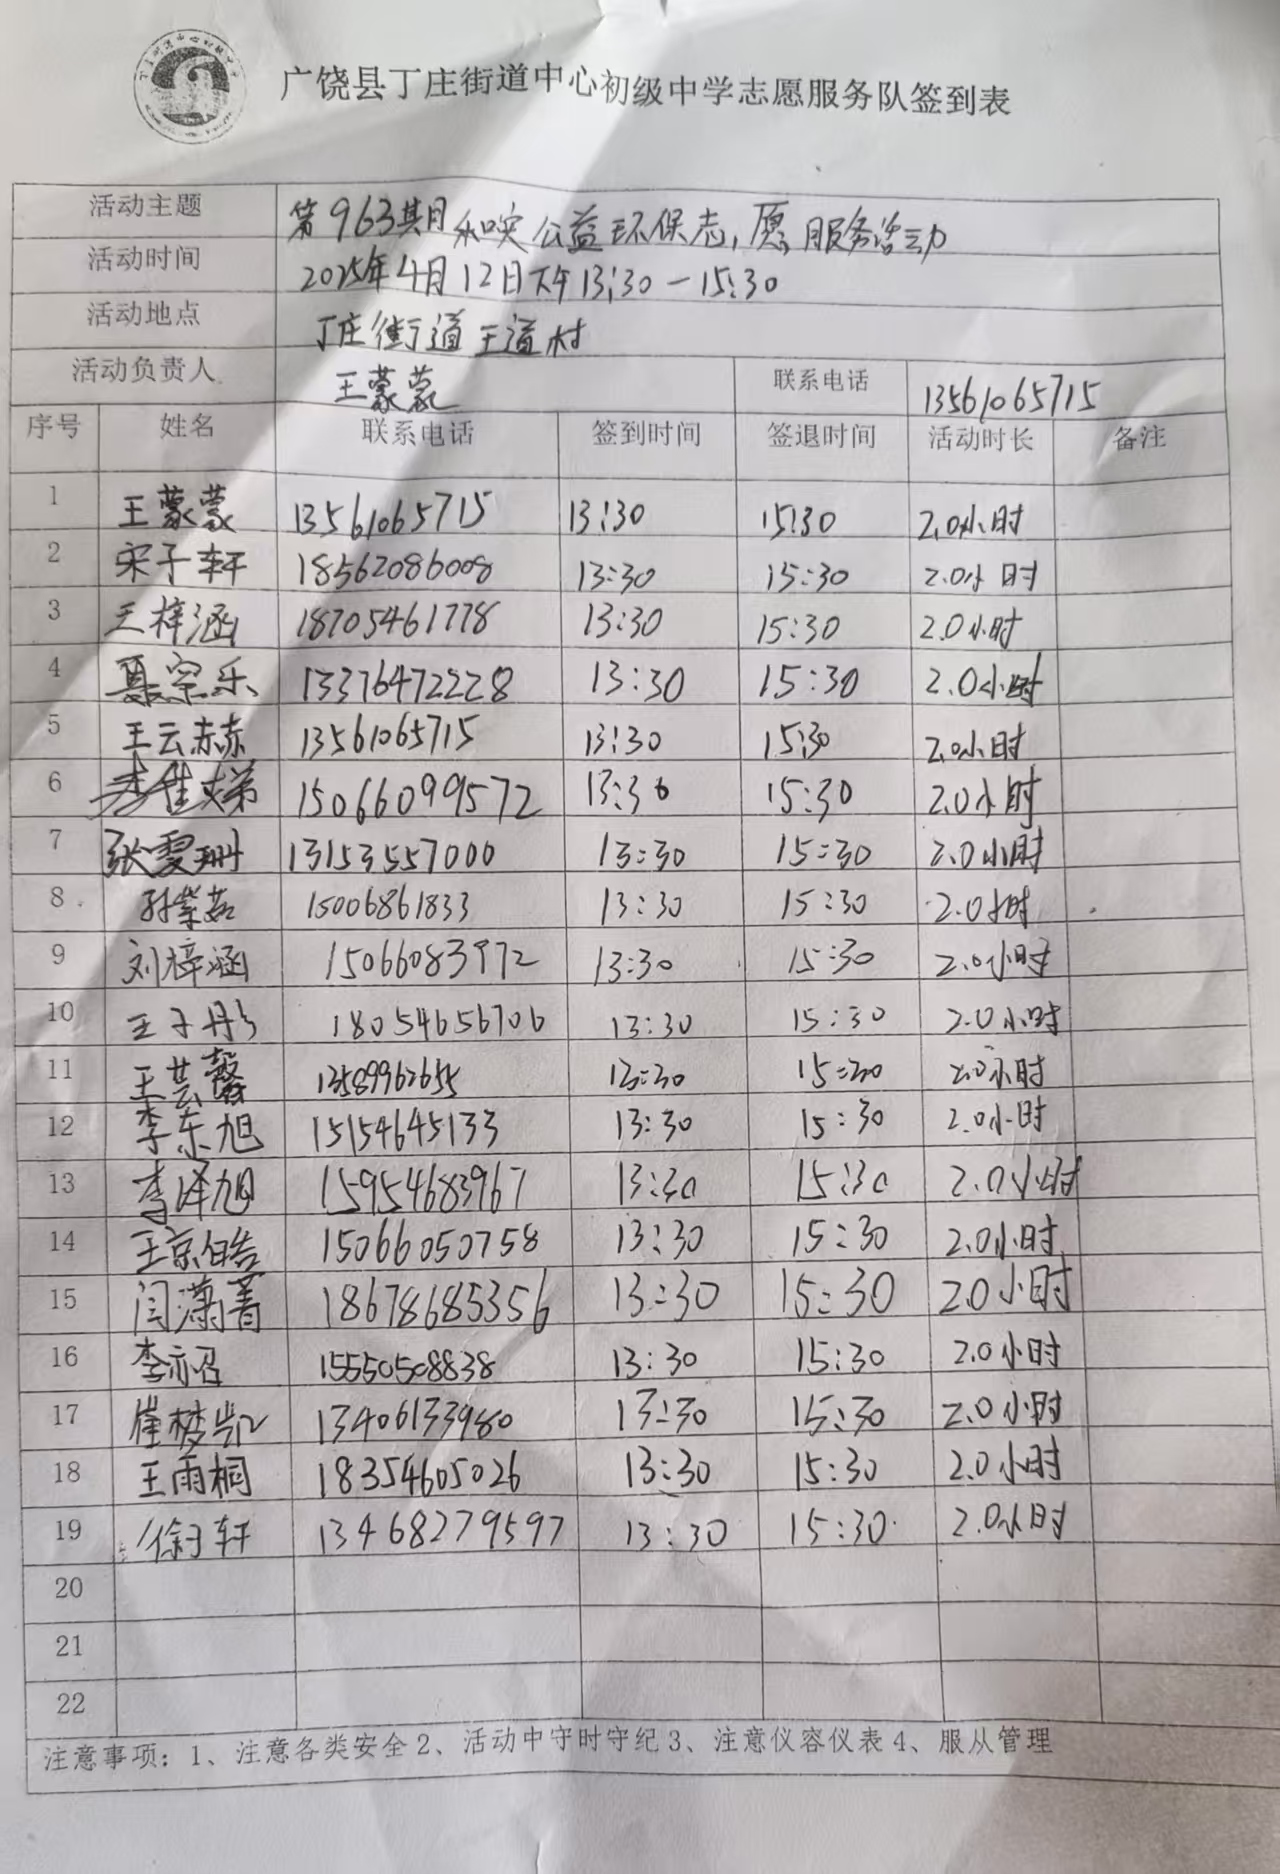 广饶县丁庄街道中心初级中学志愿服务队签到表
活动主题 第963期 公益环保志愿服务活动
活动时间 2025年4月12日下午13:30-15:30
活动地点 丁庄街道王道村
活动负责人 王蒙蒙 联系电话 13561065715
序号 姓名 联系电话 签到时间 签退时间 活动时长 备注
1 王蒙蒙 13561065715 13:30 15:30 2.0小时
2 宋子轩 18562086008 13:30 15:30 2.0小时
3 王梓涵 18705461778 13:30 15:30 2.0小时
4 聂宗乐 13376472228 13:30 15:30 2.0小时
5 王云赫 13561065715 13:30 15:30 2.0小时
6 李佳 15066099572 13:30 15:30 2.0小时
7 张雯珊 13153557000 13:30 15:30 2.0小时
8 孙紫茹 15006861833 13:30 15:30 2.0小时
9 刘梓涵 15066083972 13:30 15:30 2.0小时
10 王子彤 18054656706 13:30 15:30 2.0小时
11 王芸馨 13589962655 13:30 15:30 2.0小时
12 李东旭 15154645133 13:30 15:30 2.0小时
13 李泽旭 15954683967 13:30 15:30 2.0小时
14 王京皓 15066050758 13:30 15:30 2.0小时
15 闫潇菁 18678685356 13:30 15:30 2.0小时
16 李亦诏 15550508838 13:30 15:30 2.0小时
17 崔梦凯 13406133980 13:30 15:30 2.0小时
18 王雨桐 18354605026 13:30 15:30 2.0小时
19 徐子轩 13468279597 13:30 15:30 2.0小时
20
21
22
注意事项：1、注意各类安全2、活动中守时守纪3、注意仪容仪表4、服从管理